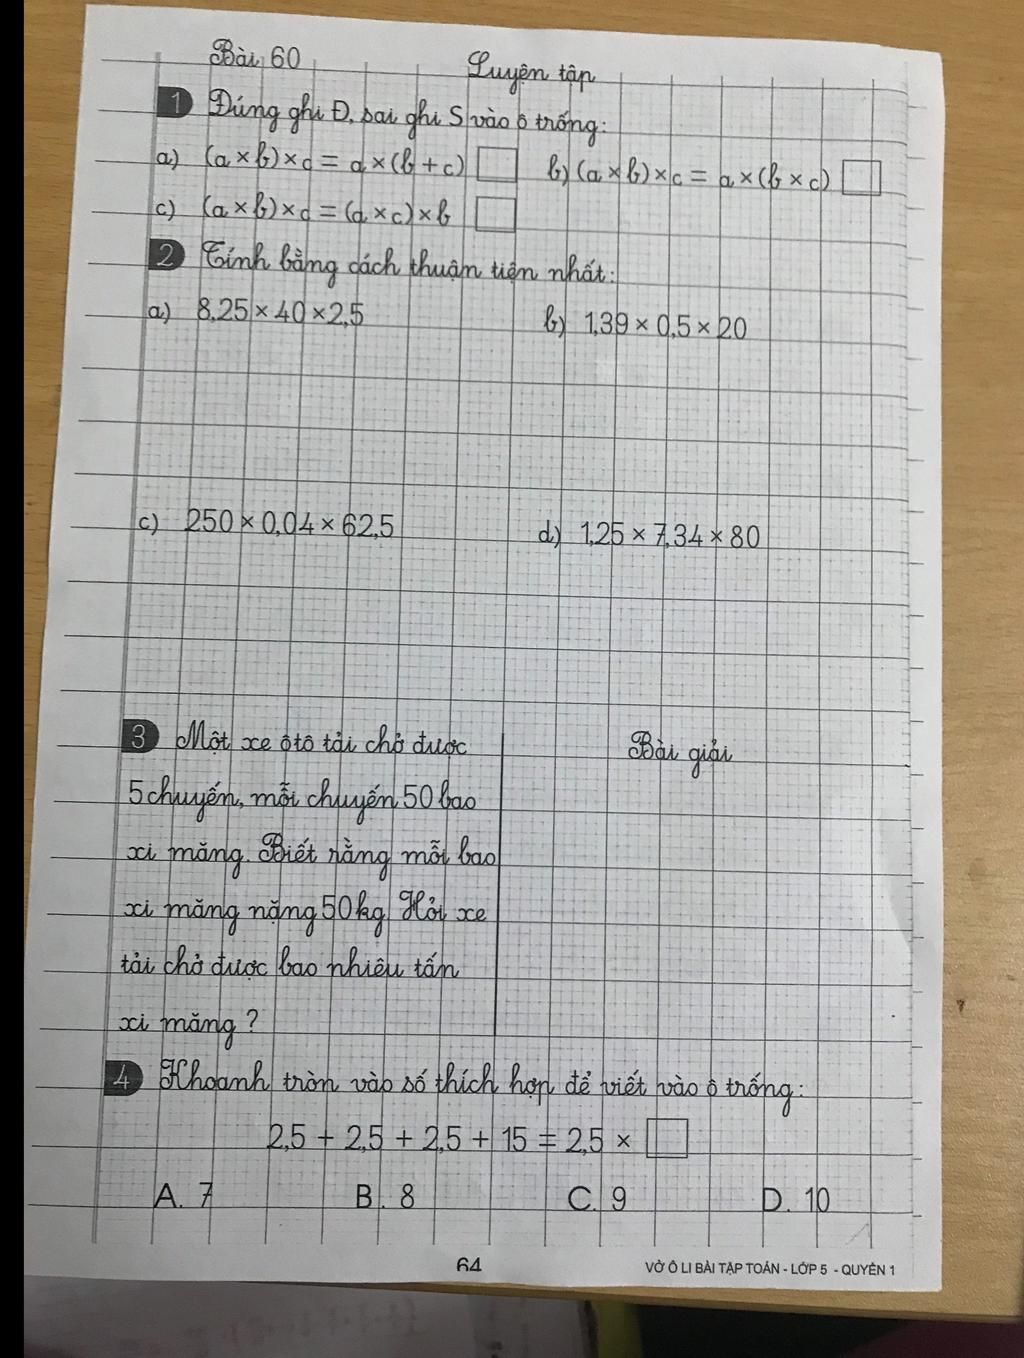 Bài 60 Luyện tập
1 Đúng ghi Đ, sai ghi S vào ô trống:
a) (a × b) × c = a × (b + c) b) (a × b) × c = a × (b × c)
c) (a × b) × c = (a × c) × b
2 Tính bằng cách thuận tiện nhất:
a) 8,25 × 40 × 2,5 b) 1,39 × 0,5 × 20
c) 250 × 0,04 × 62,5 d) 1,25 × 7,34 × 80
3 Một xe ôtô tải chở được
5 chuyến, mỗi chuyến 50 bao
xi măng. Biết rằng mỗi bao
xi măng nặng 50kg. Hỏi xe
tải chở được bao nhiêu tấn
xi măng?
Bài giải
4 Khoanh tròn vào số thích hợp để viết vào ô trống:
2,5 + 2,5 + 2,5 + 15 = 2,5 ×
A. 7 B. 8 C. 9 D. 10
64 VỞ Ô LI BÀI TẬP TOÁN - LỚP 5 - QUYỂN 1